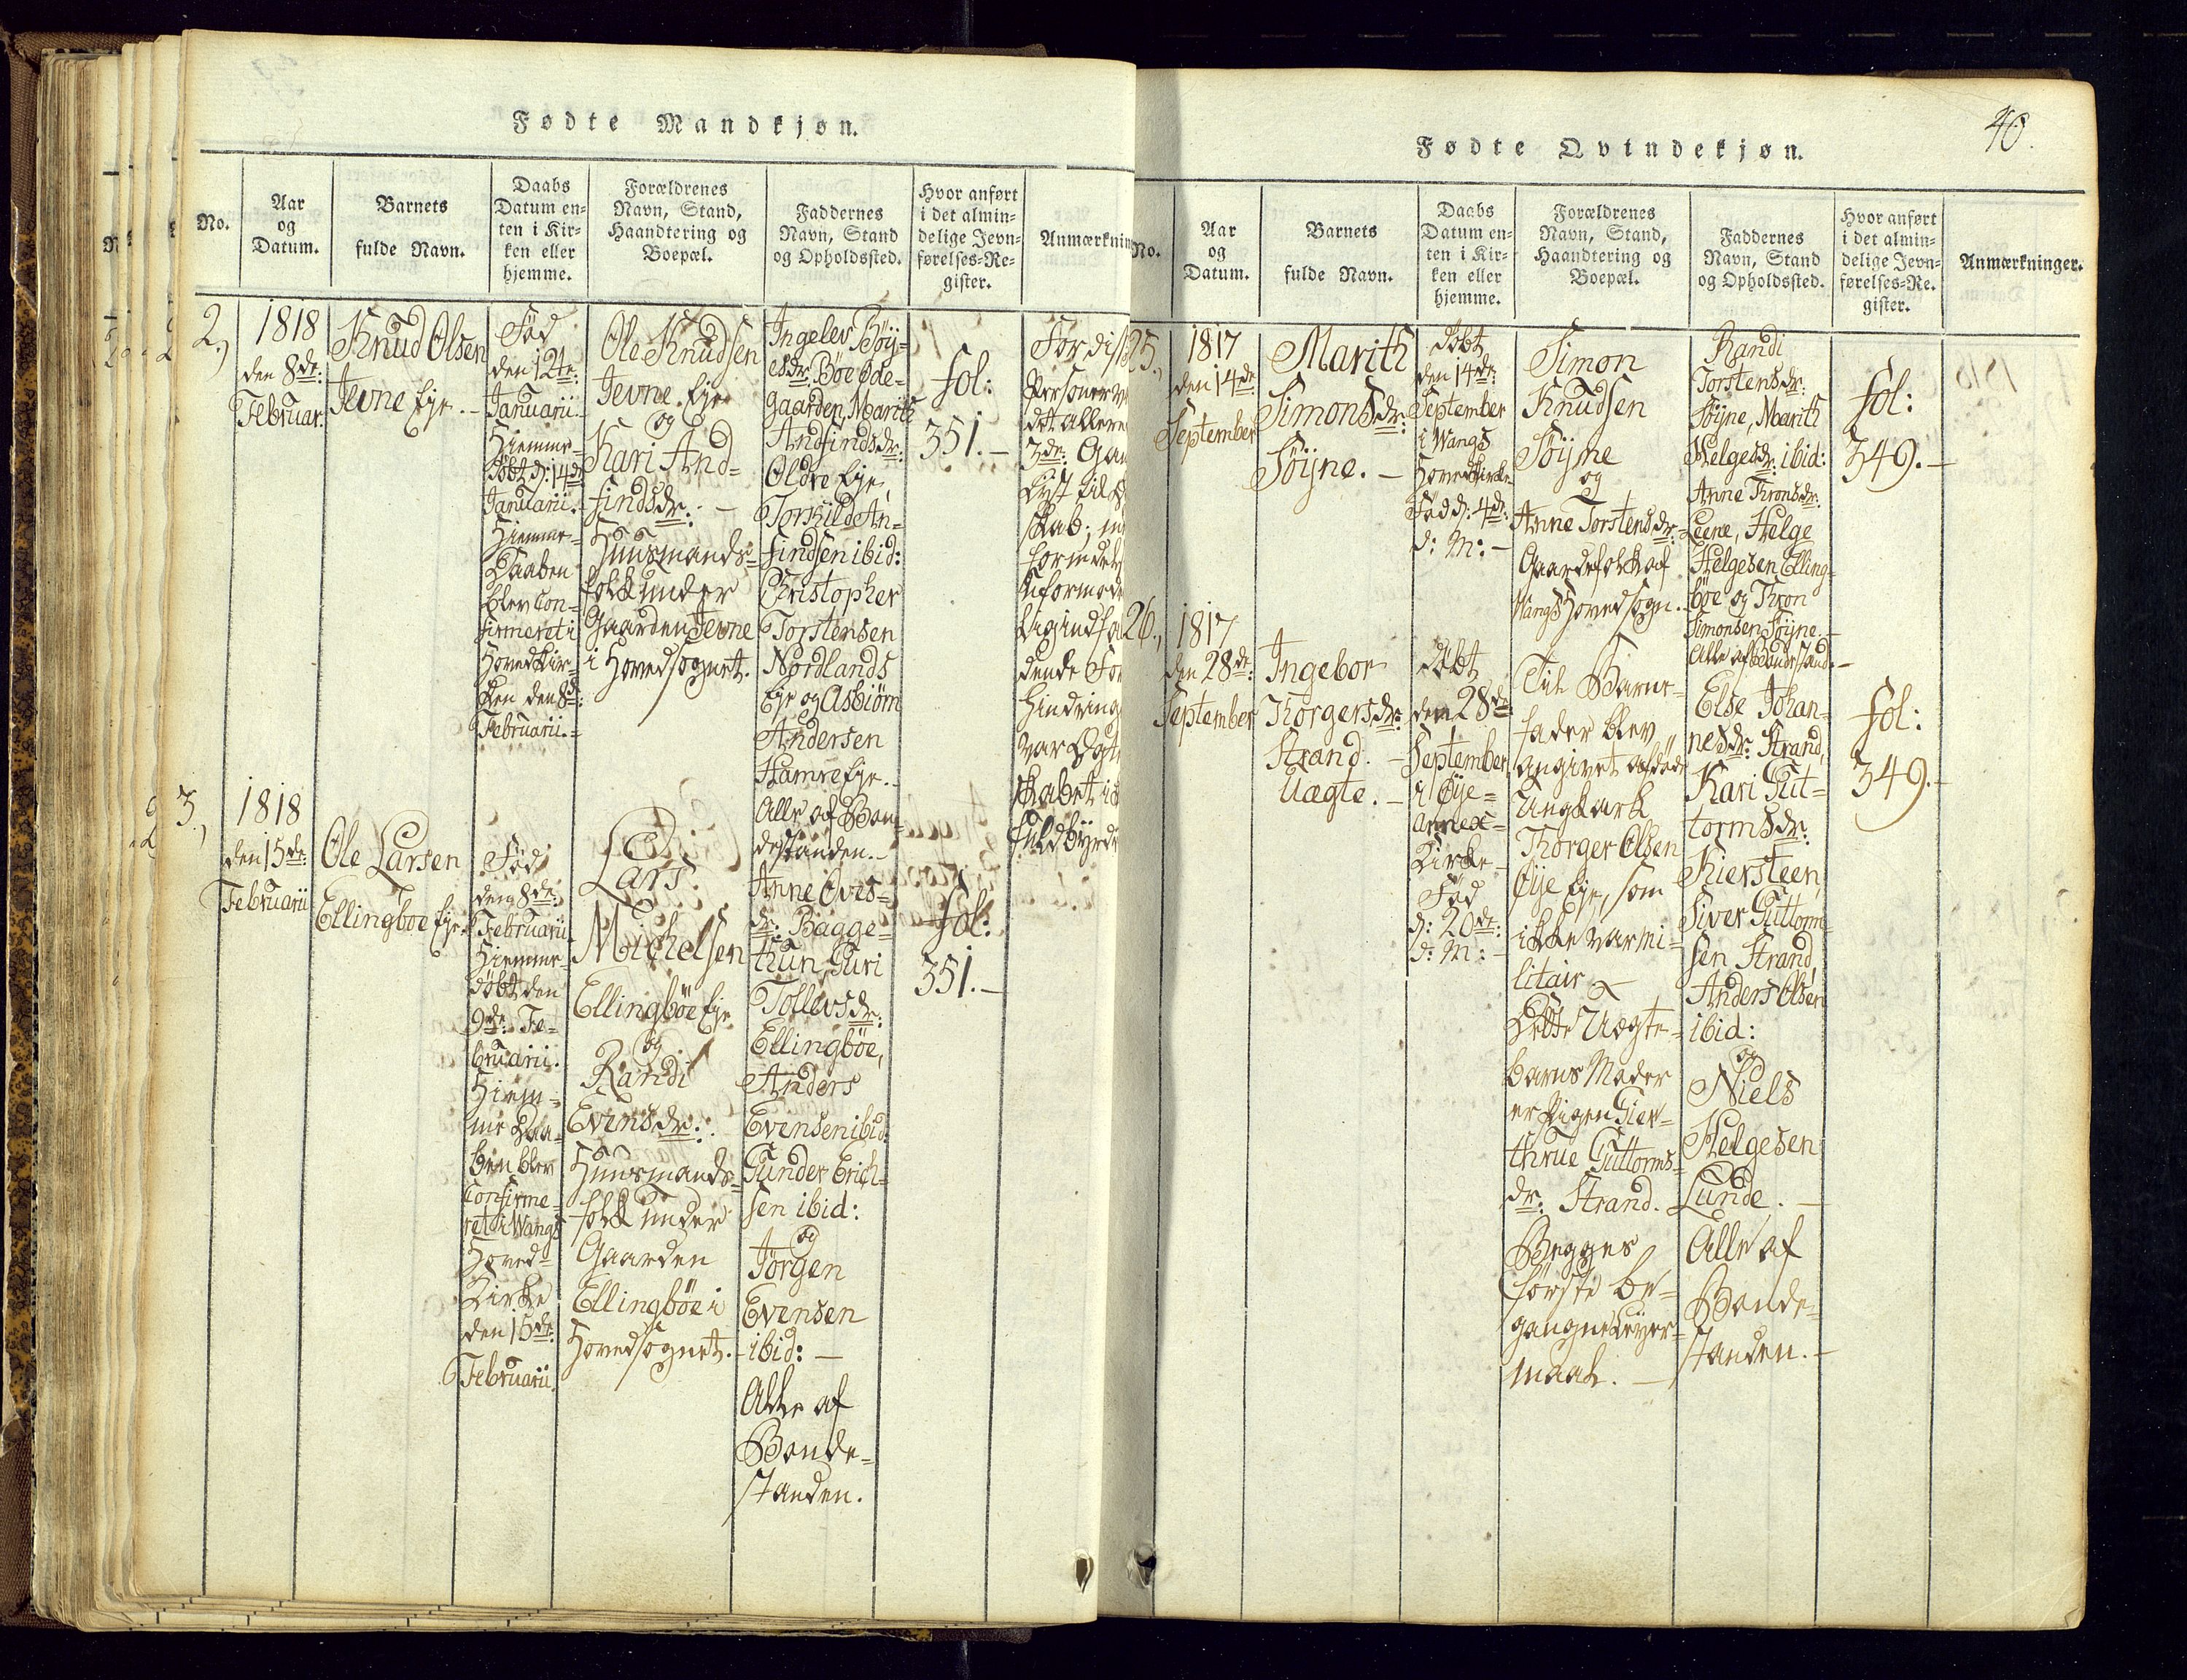 Fødte Mandkjøn.
No.
Aar
og
Datum.
Barnets
fulde Navn.
Daabs
Datum en-
ten i Kir-
ken eller
hjemme.
Forældrenes
Navn, Stand,
Haandtering og
Boepæl.
Faddernes
Navn, Stand
og Opholdssted.
Hvor anført
i det almin-
delige Jevn-
førelses-Re-
gister.
Anmærknin
2.,
1818
den 8de:
Februar.
Knud Olsen
Jevne Eje.-
Fød
den 12te:
Januarii.
Hiemme-
døbt d: 14de
Januarii.
Hiemme-
Daaben
blev Con-
firmeret i
Hovedkir-
ken den 8de:
Februarii.-
Ole Knudsen
Jevne Eje
og
Kari And-
findsdr: -
Huusmands-
folk under
Gaarden Jevne
i Hovedsognet.
Ingelev Böÿ-
esdr: Böe Öde-
gaarden, Marith
Andfindsdr:
Öldre Eje,
Torkild An-
findsen ibid:
Christopher
Torstensen
Nordlands
Eje og Asbiörn
Andersen
Hamre Eje.-
Alle af Bon-
destanden.-
fol:
351.-
For diss
Personer
det allere
3de: Gan
lyst til
skab; m
formedelst
uformode
dende For
Hindring
var Ægte
skabet i
fuldbyrde
3.,
1818
den 15de:
Februarii
Ole Larsen
Ellingboe Eje.
Fød
den 8de:
Februarii
Hiemme-
døbt den
9de: Fe-
bruarii.
Hiem-
me Daa-
ben blev
Confirme-
ret i Wangs
Hoved-
Kirke
den 15de:
Februarii.
Lars
Michelsen
Ellingböe Eje
og
Randi
Evensdr:
Huusmands-
folk under
Gaarden
Ellingböe i
Hovedsognet.-
Anne Ovis-
dr: Bagge-
thun, Guri
Tollevsdr:
Ellingböe,
Anders
Evensen ibid:
Gunder Erich-
sen ibid:
og
Jörgen
Evensen
ibid: -
Alle af
Bonde-
standen.
fol:
351.-
40.
Fødte Qvindekjøn.
No.
Aar
og
Datum.
Barnets
fulde Navn.
Daabs
Datum en-
ten i Kir-
ken eller
hjemme.
Forældrenes
Navn, Stand,
Haandtering og
Boepæl.
Faddernes
Navn, Stand
og Opholdssted.
Hvor anført
i det almin-
delige Jevn-
førelses-Re-
gister.
Anmærkninger.
25.,
1817
den 14de
September
Marith
Simonsdr:
Söÿne.-
Døbt
den 14de:
September
i Wangs
Hovedkirke
Fød d: 4de:
d: M: -
Simon
Knudsen
Söÿne
og
Anne Torstensdr:
Gaardefolk af
Wangs Hovedsogn.
Randi
Torstensdr:
Söÿne, Marith
Helgesdr: ibid:
Anne Thronsdr:
Leene, Helge
Helgesen Elling-
böe og Thron
Simonsen Söÿne.-
Alle af Bondestand.-
fol:
349.-
26.,
1817
den 28de:
September
Ingebor
Thorgersdr:
Strand. -
Uægte. -
Døbt
den 28de
September
i Öÿe-
Annex-
Kirke-
Fød
d: 20de:
d: M: -
Til Barne-
fader blev
angivet afdøde
Ungkarl
Thorger Olsen
Öÿe Eje, som
ikke var mi-
litair.
Dette Uægte-
barns Moder
er Pigen Gier-
thrue Guttorms-
dr: Strand.
Begges
første be-
gangne Leyer-
maal. -
Else Johan-
nesdr: Strand,
Kari Gut-
tormsdr:
Kiersteen,
Siver Guttorm-
sen Strand,
Anders Olsen
ibid:
og
Niels
Helgesen
Lunde. -
Alle af
Bonde-
standen.-
fol:
349.-